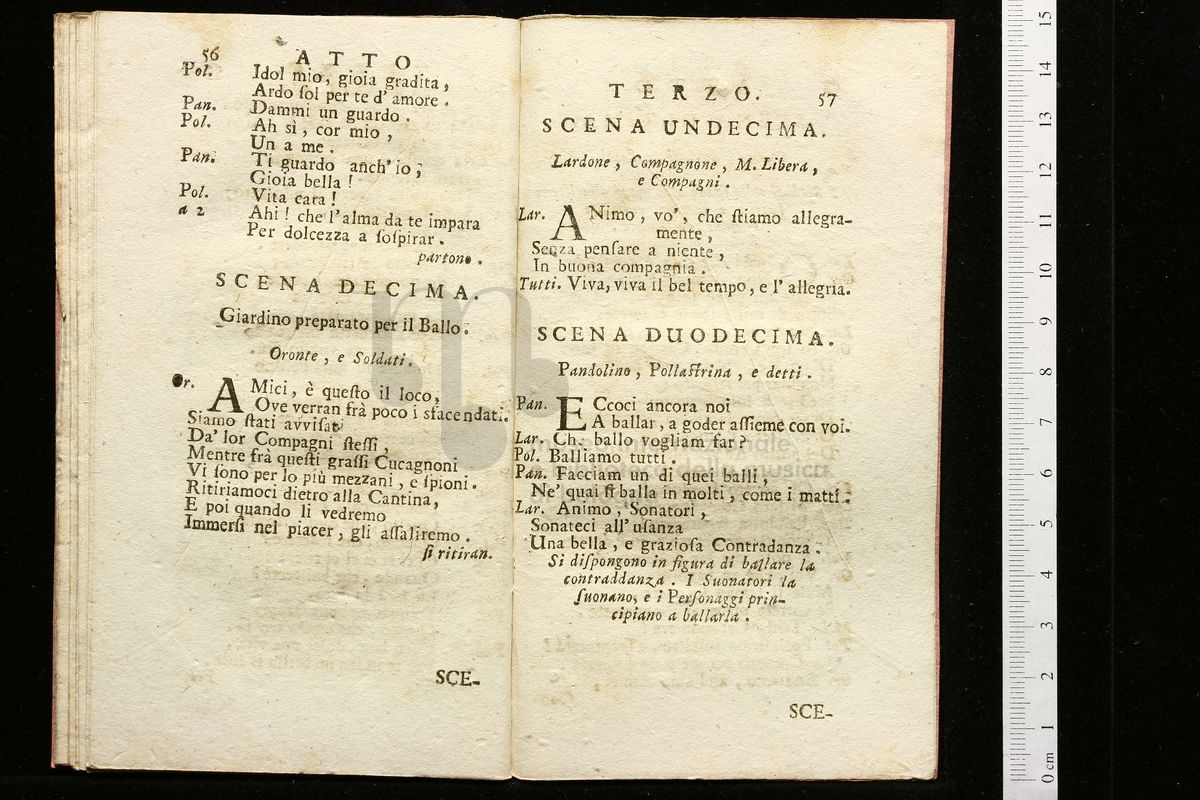 56
ATTO
Pol. Idol mio, gioia gradita,
Ardo ſol per te d' amore.
Pan. Dammi un guardo.
Pol. Ah sì, cor mio,
Un a me.
Pan. Ti guardo anch' io;
Gioia bella!
Pol. Vita cara!
a 2 Ahi! che l'alma da te impara
Per dolcezza a ſoſpirar.
partono.
SCENA DECIMA.
Giardino preparato per il Ballo.
Oronte, e Soldati.
Or. AMici, è queſto il loco,
Ove verran frà poco i sfacendati.
Siamo ſtati avviſati
Da' lor Compagni ſteſſi,
Mentre frà queſti graſſi Cucagnoni
Vi ſono per lo più mezzani, e ſpioni.
Ritiriamoci dietro alla Cantina,
E poi quando li vedremo
Immerſi nel piacer, gli aſſaliremo.
ſi ritiran.
SCE-
TERZO.
57
SCENA UNDECIMA.
Lardone, Compagnone, M. Libera,
e Compagni.
Lar. ANimo, vo', che ſtiamo allegra-
mente,
Senza penſare a niente,
In buona compagnia.
Tutti. Viva, viva il bel tempo, e l' allegria.
SCENA DUODECIMA.
Pandolino, Pollaſtrina, e detti.
Pan. ECcoci ancora noi
A ballar, a goder aſſieme con voi.
Lar. Ch. ballo vogliam far?
Pol. Balliamo tutti.
Pan. Facciam un di quei balli,
Ne' quai ſi balla in molti, come i matti.
Lar. Animo, Sonatori,
Sonateci all' uſanza
Una bella, e grazioſa Contradanza.
Si diſpongono in figura di ballare la
contraddanza. I Suonatori la
ſuonano, e i Perſonaggi prin-
cipiano a ballarla.
SCE-
0 cm 1 2 3 4 5 6 7 8 9 10 11 12 13 14 15